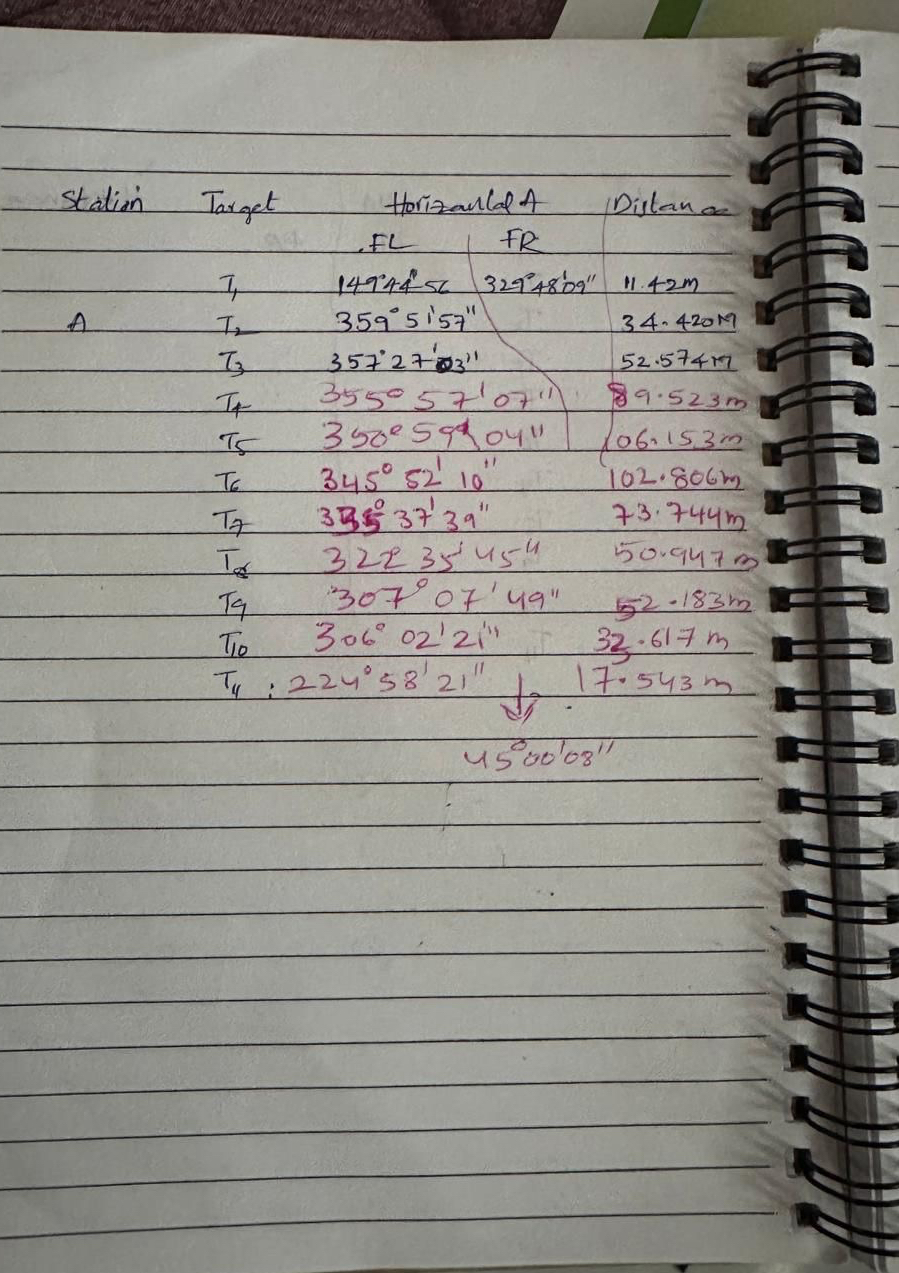 Station Target Horizontal A Distance
FL FR
T1 149°44'56 329°48'09" 11.42m
A T2 359°51'57" 34.420M
T3 357°27'03" 52.574M
T4 355° 57' 07" 89.523m
T5 350° 59' 04" 106.153m
T6 345° 52' 10" 102.806m
T7 335° 37' 39" 73.744m
T8 322 35' 45" 50.947m
T9 307° 07' 49" 52.183m
T10 306° 02' 21" 32.617m
T11 : 224° 58' 21" 17.543m
45°00'08"